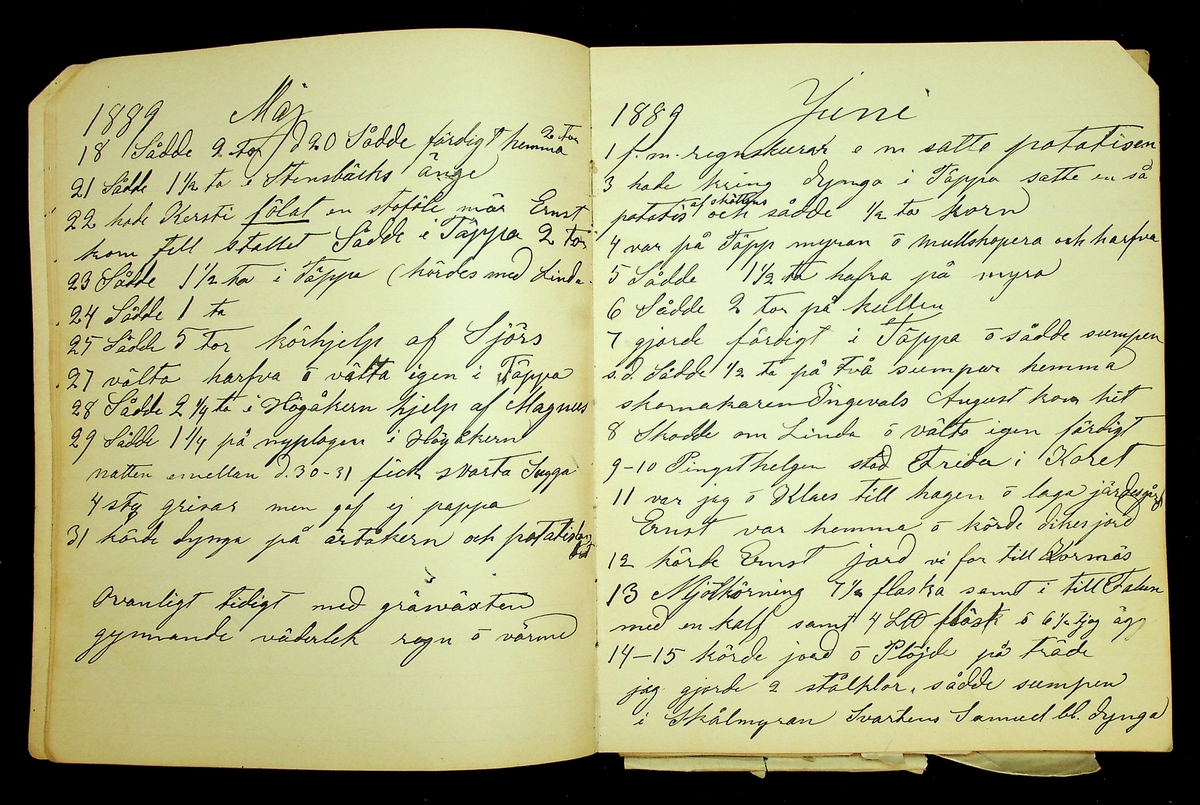 1889 Maj
18 Sådde 2 tor d 20 Sådde färdigt hemma 2 tor
21 Sådde 1 1/2 ta i Stensbäcks änge
22 hade Kersti fölat en stoföle mär Ernst
kom till stallet Sådde i Täppa 2 tor
23 Sådde 1 1/2 ta i Täppa (kördes med Linda
24 Sådde 1 ta
25 Sådde 5 tor körhjelp af Sjörs
27 välta harfva ö välta igen i Täppa
28 Sådde 2 1/4 ta i Högåkern hjelp af Magnus
29 Sådde 1 1/4 på nyplogen i Högåkern
natten emellan d. 30-31 fick svarta Sugga
4 sty grisar men gaf ej pappa
31 körde dynga på ärtåkern och potatislan
Ovanligt tidigt med gräsväxten
gynnande väderlek regn ö värme
1889 Yuni
1 f.m. regnskurar e m satte potatisen
3 hade kring dynga i Täppa satte en så
potatis af skötten och sådde 1/2 ta korn
4 var på Täpp myran ö mullskopera och harfva
5 Sådde 1 1/2 ta hafra på myra
6 Sådde 2 tor på kullen
7 gjorde färdigt i Täppa ö sådde sumpen
s.d. Sådde 1/2 ta på två sumpar hemma
skomakaren Ingevals August kom hit
8 Skodde om Linda ö välta igen färdigt
9-10 Pingsthelgen stod Frida i Koret
11 var jag ö Klaes till hagen ö laga järdesgård
Ernst var hemma ö körde dikesjord
12 körde Ernst jord vi for till Kormäs
13 Mjölkörning 7 1/2 flaska samt i till Falun
med en kalf samt 4 LW fläsk ö 6 1/2 tjog ägg
14-15 körde jord ö Plöjde på träde
jag gjorde 2 stålklor, sådde sumpen
i Skålmyran Svartens Samuel bl. dynga